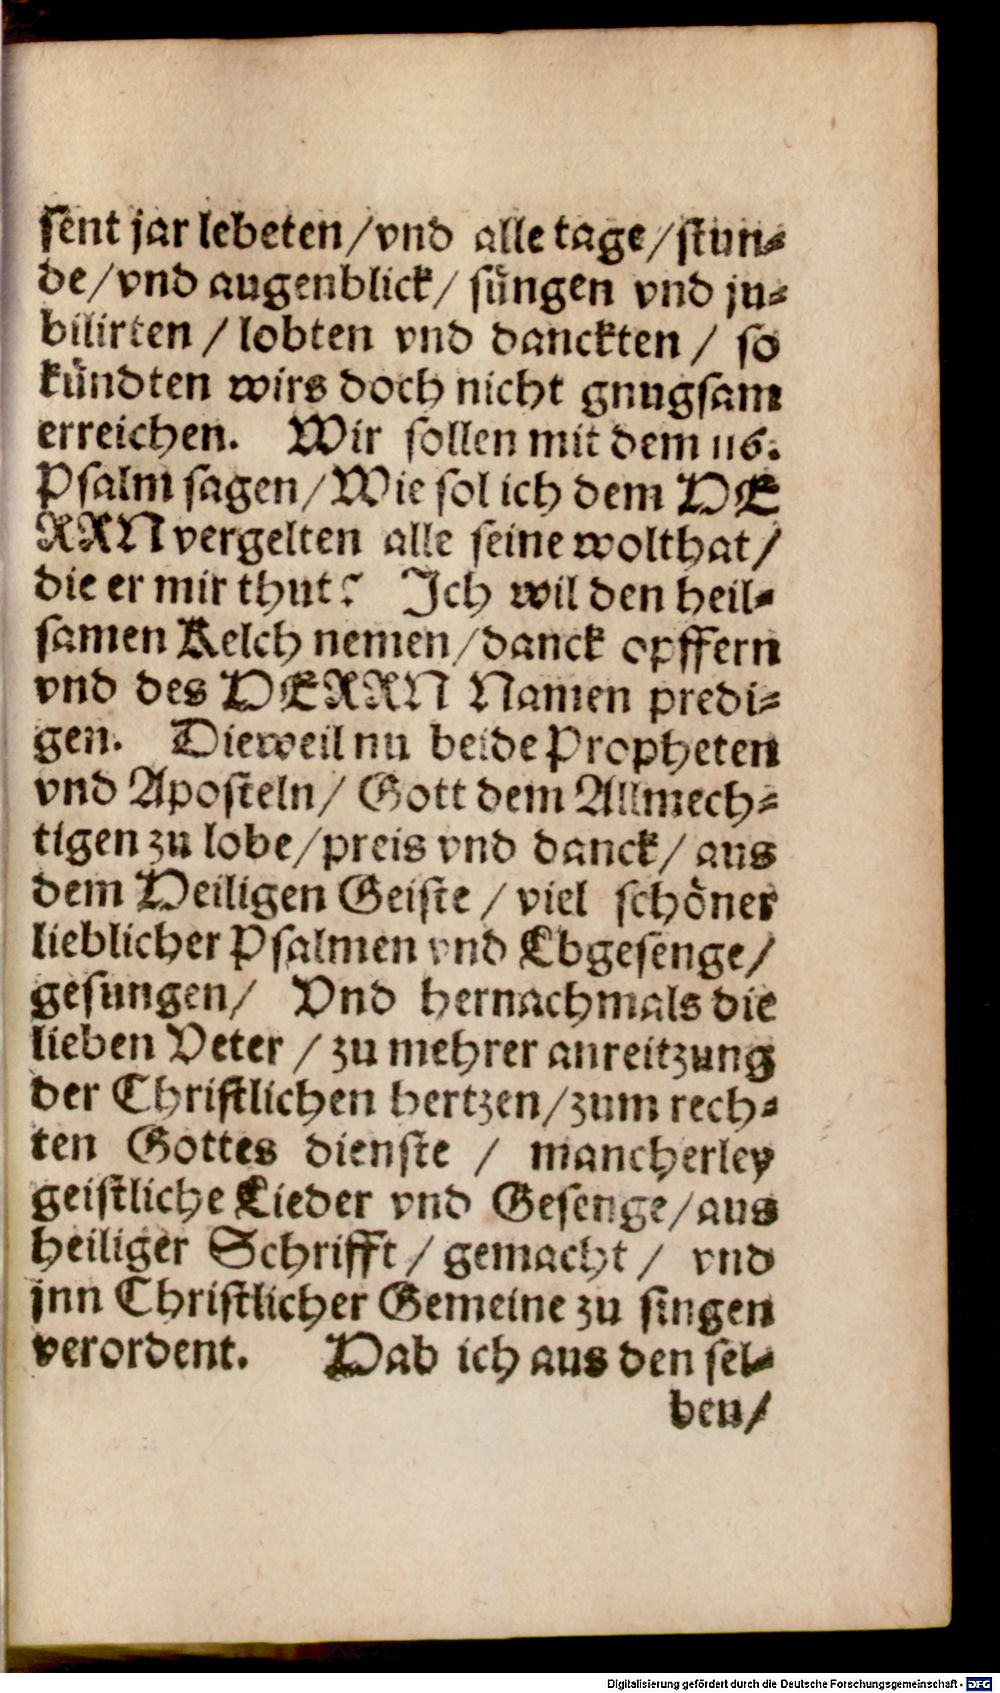 sent jar lebeten/vnd alle tage/stun⸗
de/vnd augenblick/ süngen vnd ju⸗
bilirten / lobten vnd danckten / so
kündten wirs doch nicht gnugsam
erreichen. Wir sollen mit dem 116.
Psalm sagen/Wie sol ich dem HE
RRN vergelten alle seine wolthat/
die er mir thut? Ich wil den heil⸗
samen Kelch nemen/danck opffern
vnd des HERRN Namen predi⸗
gen. Dieweil nu beide Propheten
vnd Aposteln/ Gott dem Allmech⸗
tigen zu lobe/preis vnd danck/ aus
dem Heiligen Geiste / viel schöner
lieblicher Psalmen vnd Lbgesenge/
gesungen/ Vnd hernachmals die
lieben Veter / zu mehrer anreitzung
der Christlichen hertzen/zum rech⸗
ten Gottes dienste / mancherley
geistliche Lieder vnd Gesenge/aus
heiliger Schrifft / gemacht / vnd
jnn Christlicher Gemeine zu singen
verordent. Hab ich aus den sel⸗
ben/
Digitalisierung gefördert durch die Deutsche Forschungsgemeinschaft - DFG